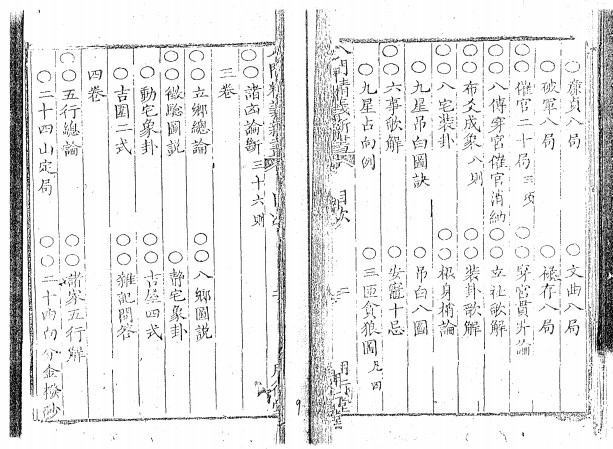 ○廉貞八局
○文曲八局
○破軍八局
○祿存八局
○催官二十局 三項
○穿宮貫井論
○八傳穿宮催官消納
○立社歌解
○布爻成象 八則
○裝卦歌解
○八宅裝卦
○根身稍論
○九星吊白圖訣
○吊白八圖
○六事歌解
○安竈十忌
○九星占向例
○三匝貪狼圖
八門精義新書
目次
○○諸凶論斷 三十六則
三卷
○○立鄉總論
○○八鄉圖說
○○微驗圖說
○靜宅象卦
○動宅象卦
○○吉屋四式
○○吉圖二式
○○雜記問答
四卷
○○五行總論
○○諸家五行解
○二十四山定局
○○二十四向分金撥砂
9